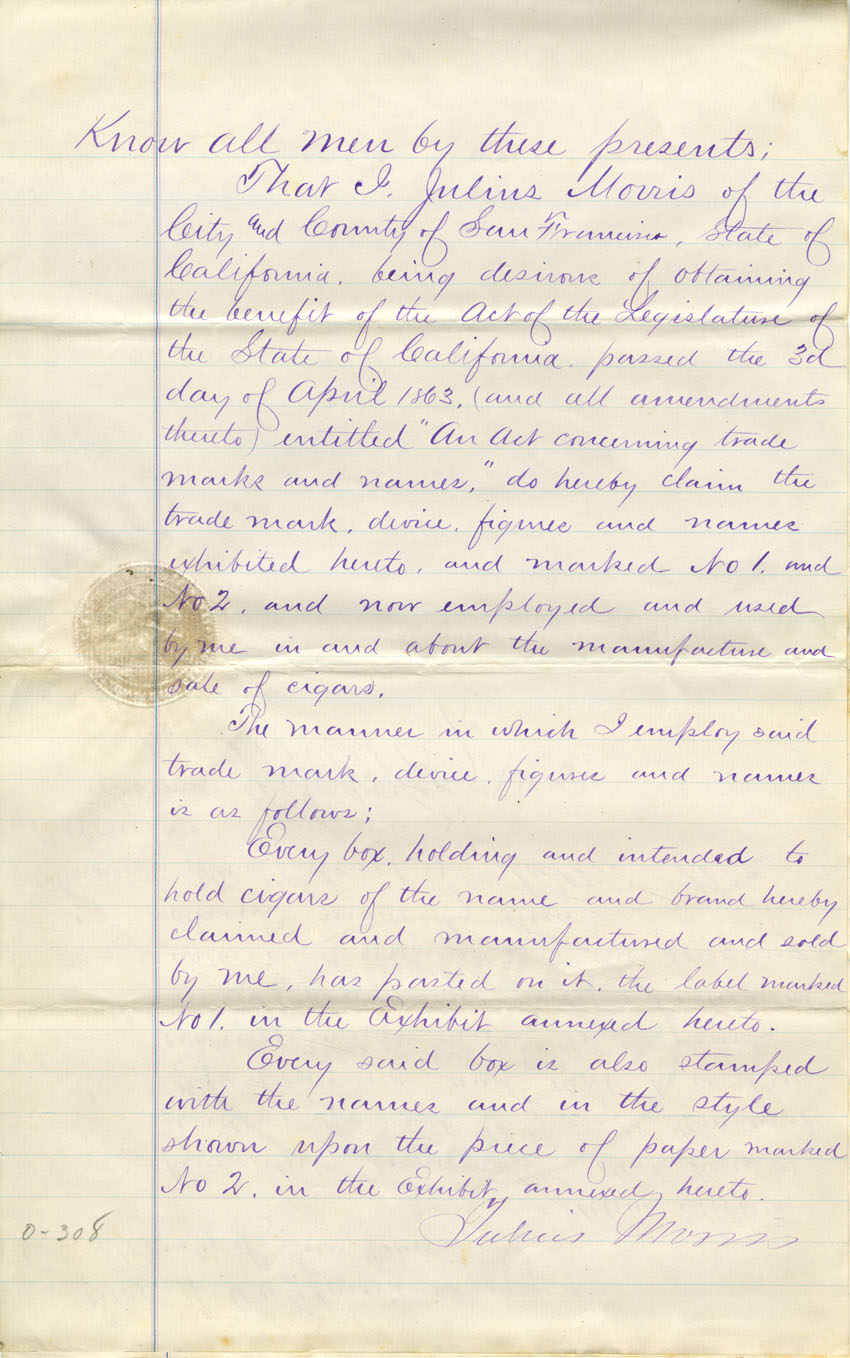 Know all men by these presents;
That I, Julius Morris of the
City and County of San Francisco, State of
California, being desirous of obtaining
the benefit of the Act of the Legislature of
the State of California, passed the 3d
day of April 1863, (and all amendments
thereto) entitled "An Act concerning trade
marks and names," do hereby claim the
trade mark, device, figures and names
exhibited hereto, and marked No 1. and
No 2, and now employed and used
by me in and about the manufacture and
sale of cigars.
The manner in which I employ said
trade mark, device, figures and names
is as follows;
Every box, holding and intended to
hold cigars of the name and brand hereby
claimed and manufactured and sold
by me, has pasted on it, the label marked
No 1. in the Exhibit annexed hereto.
Every said box is also stamped
with the names and in the style
shown upon the piece of paper marked
No 2. in the Exhibit, annexed, hereto.
Julius Morris
0-308